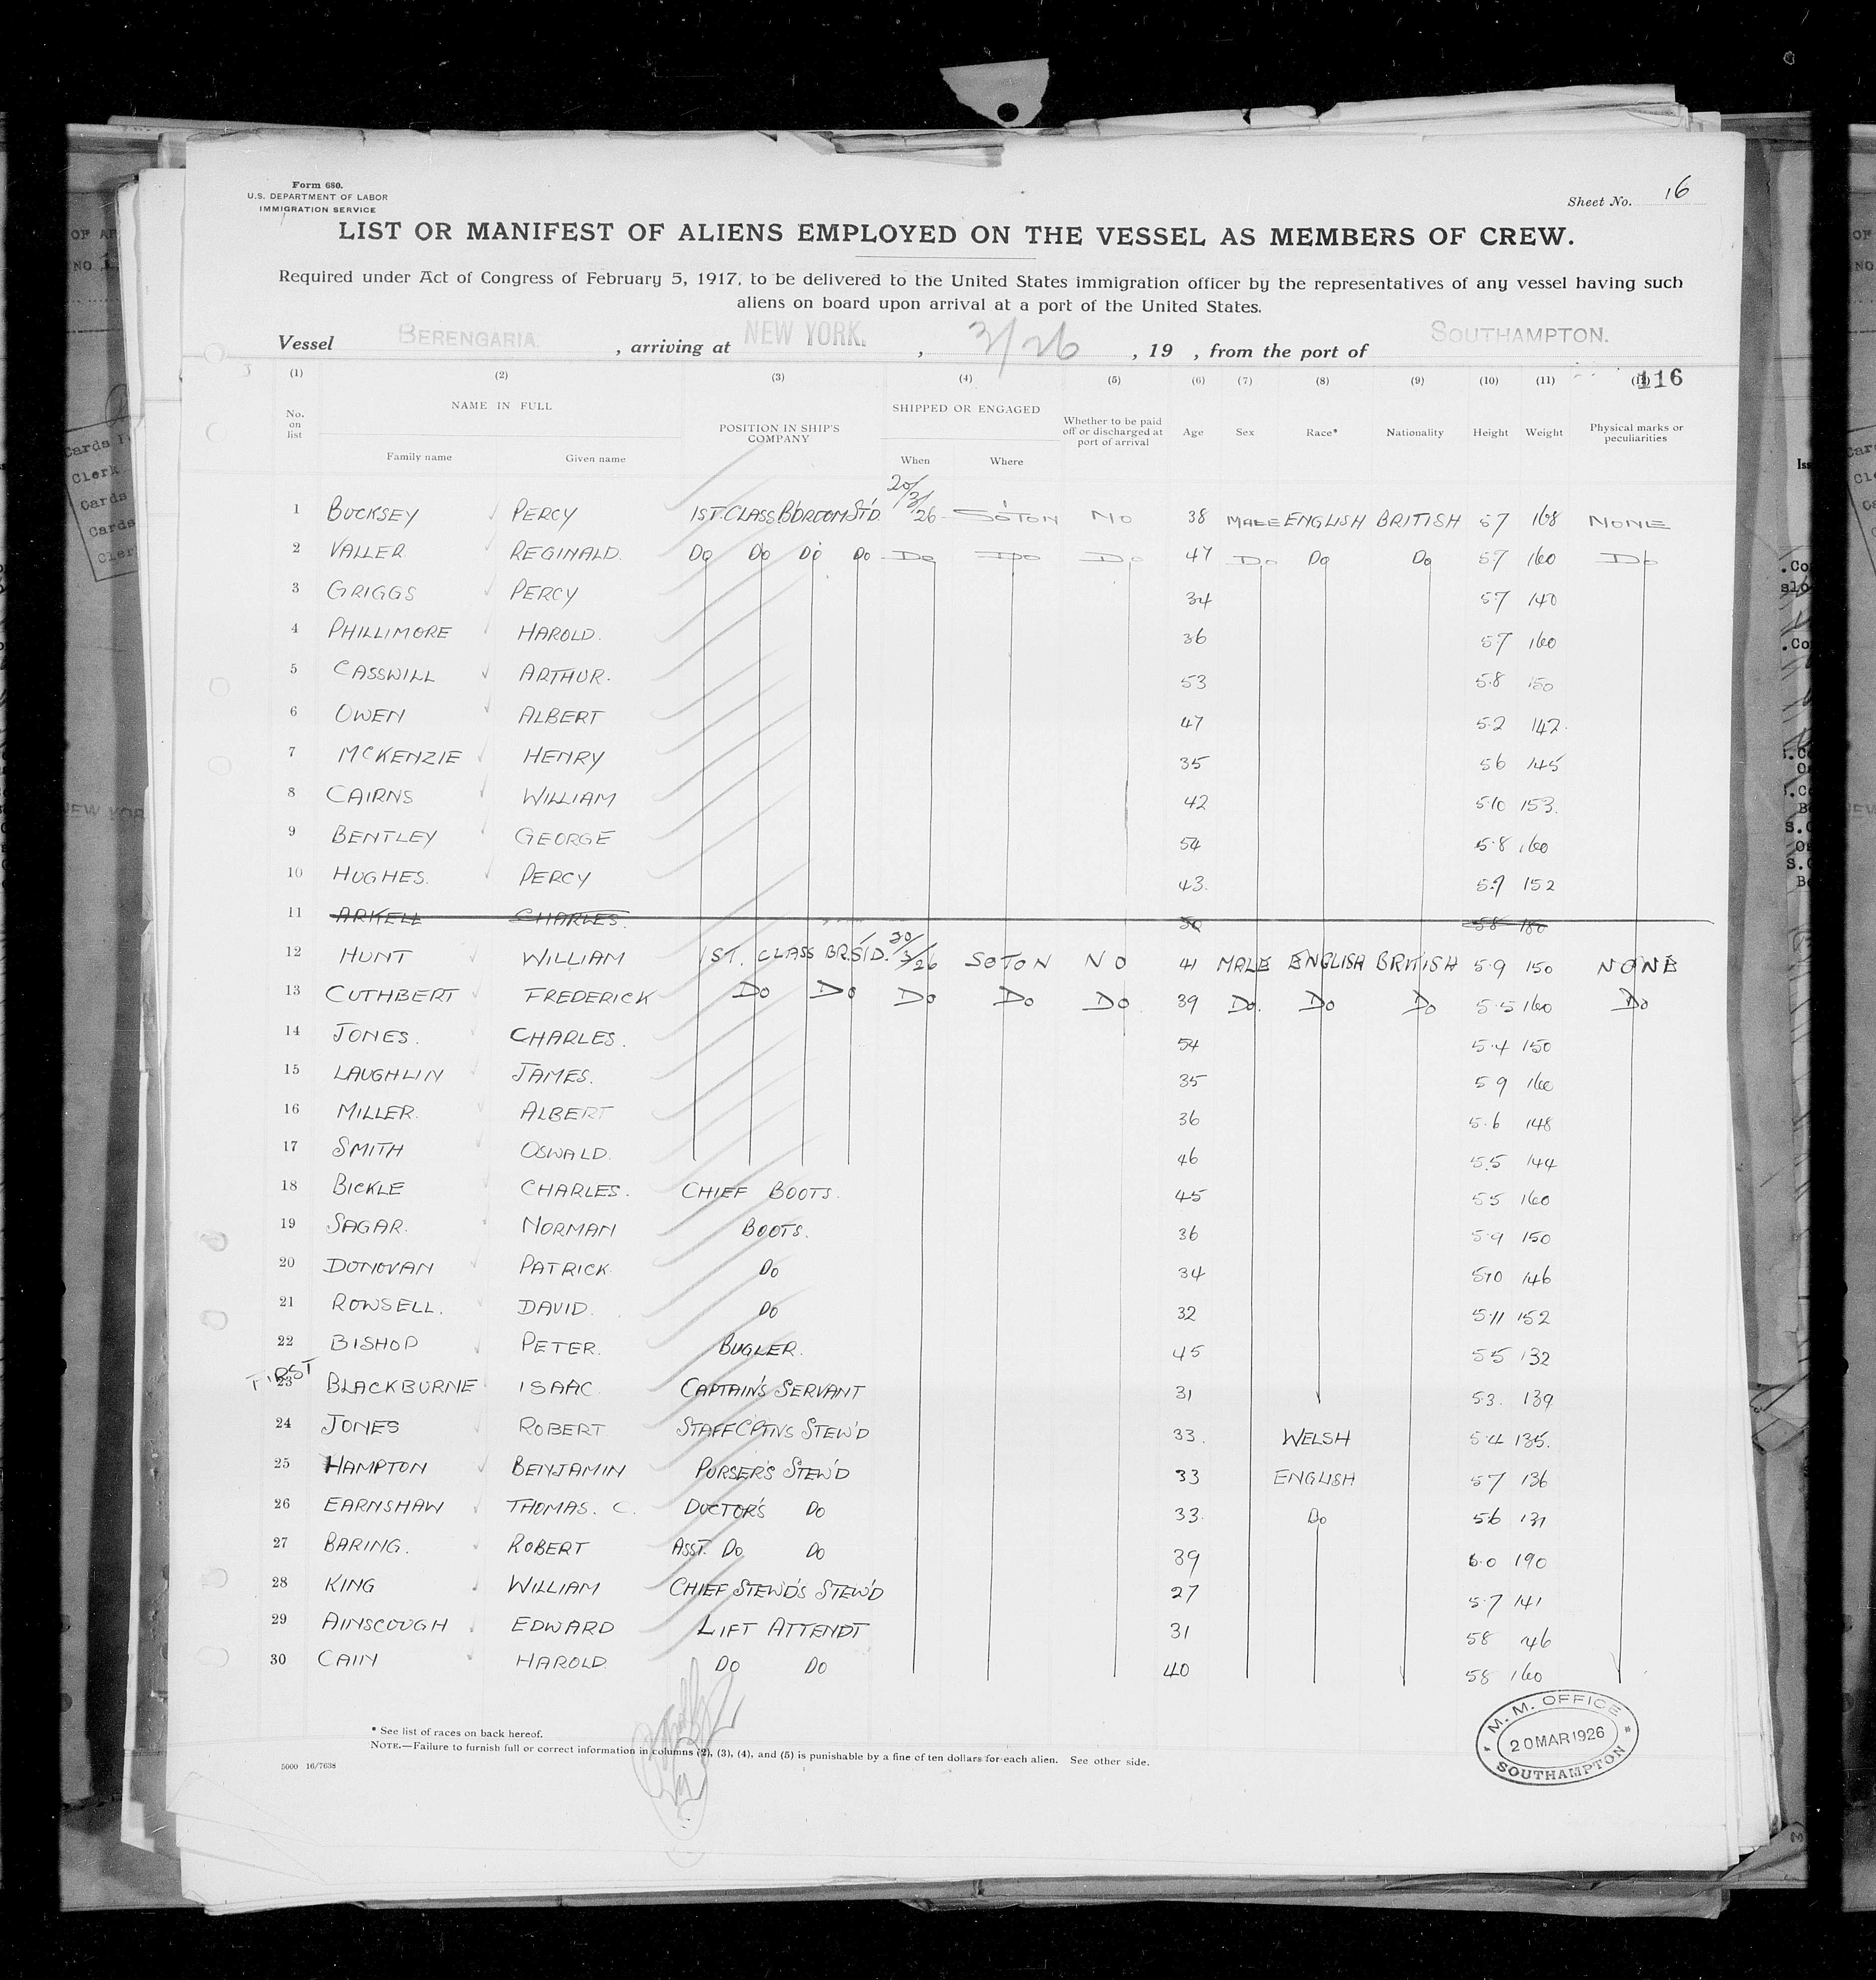 Form 680.
U.S. DEPARTMENT OF LABOR
IMMIGRATION SERVICE
Sheet No. 16
LIST OR MANIFEST OF ALIENS EMPLOYED ON THE VESSEL AS MEMBERS OF CREW.
Required under Act of Congress of February 5, 1917, to be delivered to the United States immigration officer by the representatives of any vessel having such
aliens on board upon arrival at a port of the United States.
Vessel BERENGARIA, arriving at NEW YORK. , 3/26 , 19 , from the port of SOUTHAMPTON.
116
(1) (2) (3) (4) (5) (6) (7) (8) (9) (10) (11)
No. on list NAME IN FULL POSITION IN SHIP'S COMPANY SHIPPED OR ENGAGED Whether to be paid off or discharged at port of arrival Age Sex Race* Nationality Height Weight Physical marks or peculiarities
Family name Given name When Where
1 BUCKSEY PERCY 1ST. CLASS BDROOM STD. 20/3/26 SOTON NO 38 MALE ENGLISH BRITISH 57 168 NONE
2 VALLER REGINALD. DO DO DO DO DO DO DO 47 DO DO DO 57 160 DO
3 GRIGGS PERCY 34 57 140
4 PHILLIMORE HAROLD. 36 57 160
5 CASSWILL ARTHUR. 53 5.8 150
6 OWEN ALBERT 47 5.2 142.
7 MCKENZIE HENRY 35 56 145
8 CAIRNS WILLIAM 42 5.10 153.
9 BENTLEY GEORGE 54 5.8 160
10 HUGHES. PERCY 43. 5.9 152
11 ARKELL CHARLES. 50 58 180
12 HUNT WILLIAM 1ST. CLASS BR.ST'D. 20/3/26 SOTON NO 41 MALE ENGLISH BRITISH 5.9 150 NONE
13 CUTHBERT FREDERICK DO DO DO DO DO 39 DO. DO DO 5.5 160 DO
14 JONES. CHARLES. 54 5.4 150
15 LAUGHLIN JAMES. 35 5 9 160
16 MILLER. ALBERT 36 5.6 148
17 SMITH OSWALD. 46 5.5 144
18 BICKLE CHARLES. CHIEF BOOTS. 45 5 5 160
19 SAGAR. NORMAN BOOTS. 36 5.9 150
20 DONOVAN PATRICK DO 34 5.10 146
21 ROWSELL. DAVID. DO 32 5.11 152
22 BISHOP PETER. BUGLER. 45 55 132
FIRST
23 BLACKBURNE ISAAC CAPTAIN'S SERVANT 31 5.3. 139
24 JONES ROBERT STAFF CPTNS STEW'D 33. WELSH 5.4 135.
25 HAMPTON BENJAMIN PURSER'S STEW'D 33 ENGLISH 57 136
26 EARNSHAW THOMAS. C. DOCTOR'S DO 33. DO 56 131
27 BARING. ROBERT ASST. DO DO 39 6.0 190
28 KING WILLIAM CHIEF STEWD'S STEW'D 27 5.7 141
29 AINSCOUGH EDWARD LIFT ATTENDT 31 58 146
30 CAIN HAROLD DO DO 40 58 160
* See list of races on back hereof.
NOTE.—Failure to furnish full or correct information in columns (2), (3), (4), and (5) is punishable by a fine of ten dollars for each alien. See other side.
5000 16/7638
M. M. OFFICE
20 MAR 1926
SOUTHAMPTON